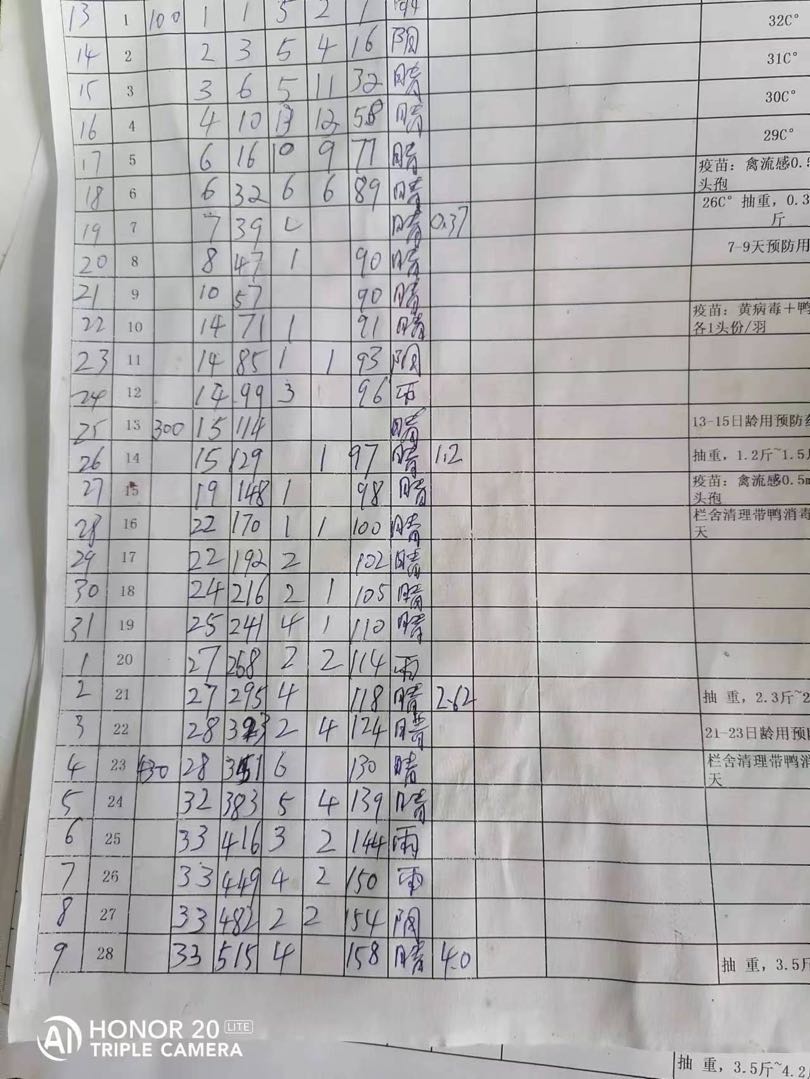 13 1 100 1 1 5 2 1 阴 32C°
14 2 2 3 5 4 16 阴 31C°
15 3 3 6 5 11 32 晴 30C°
16 4 4 10 12 58 晴 29C°
17 5 6 16 10 9 77 晴 疫苗：禽流感0.5
头孢
18 6 6 32 6 6 89 晴 26C° 抽重，0.3
斤
19 7 7 39 晴 0.37
20 8 8 47 1 90 晴 7-9天预防用
21 9 10 57 90 晴
22 10 14 71 1 91 晴 疫苗：黄病毒＋鸭
各1头份/羽
23 11 14 85 1 1 93 阴
24 12 14 99 3 96 雨
25 13 300 15 114 晴 13-15日龄用预防药
26 14 15 129 1 97 晴 1.2 抽重，1.2斤~1.5斤
27 15 19 148 1 98 晴 疫苗：禽流感0.5m
头孢
28 16 22 170 1 1 100 晴 栏舍清理带鸭消毒
天
29 17 22 192 2 102 晴
30 18 24 216 2 1 105 晴
31 19 25 241 4 1 110 晴
1 20 27 268 2 2 114 雨
2 21 27 295 4 118 晴 2.62 抽 重，2.3斤~2
3 22 28 323 2 4 124 晴 21-23日龄用预防
4 23 430 28 351 6 130 晴 栏舍清理带鸭消
天
5 24 32 383 5 4 139 晴
6 25 33 416 3 2 144 雨
7 26 33 449 4 2 150 雨
8 27 33 482 2 2 154 阴
9 28 33 515 4 158 晴 4.0 抽 重，3.5斤
HONOR 20 LITE
TRIPLE CAMERA
抽 重，3.5斤~4.2